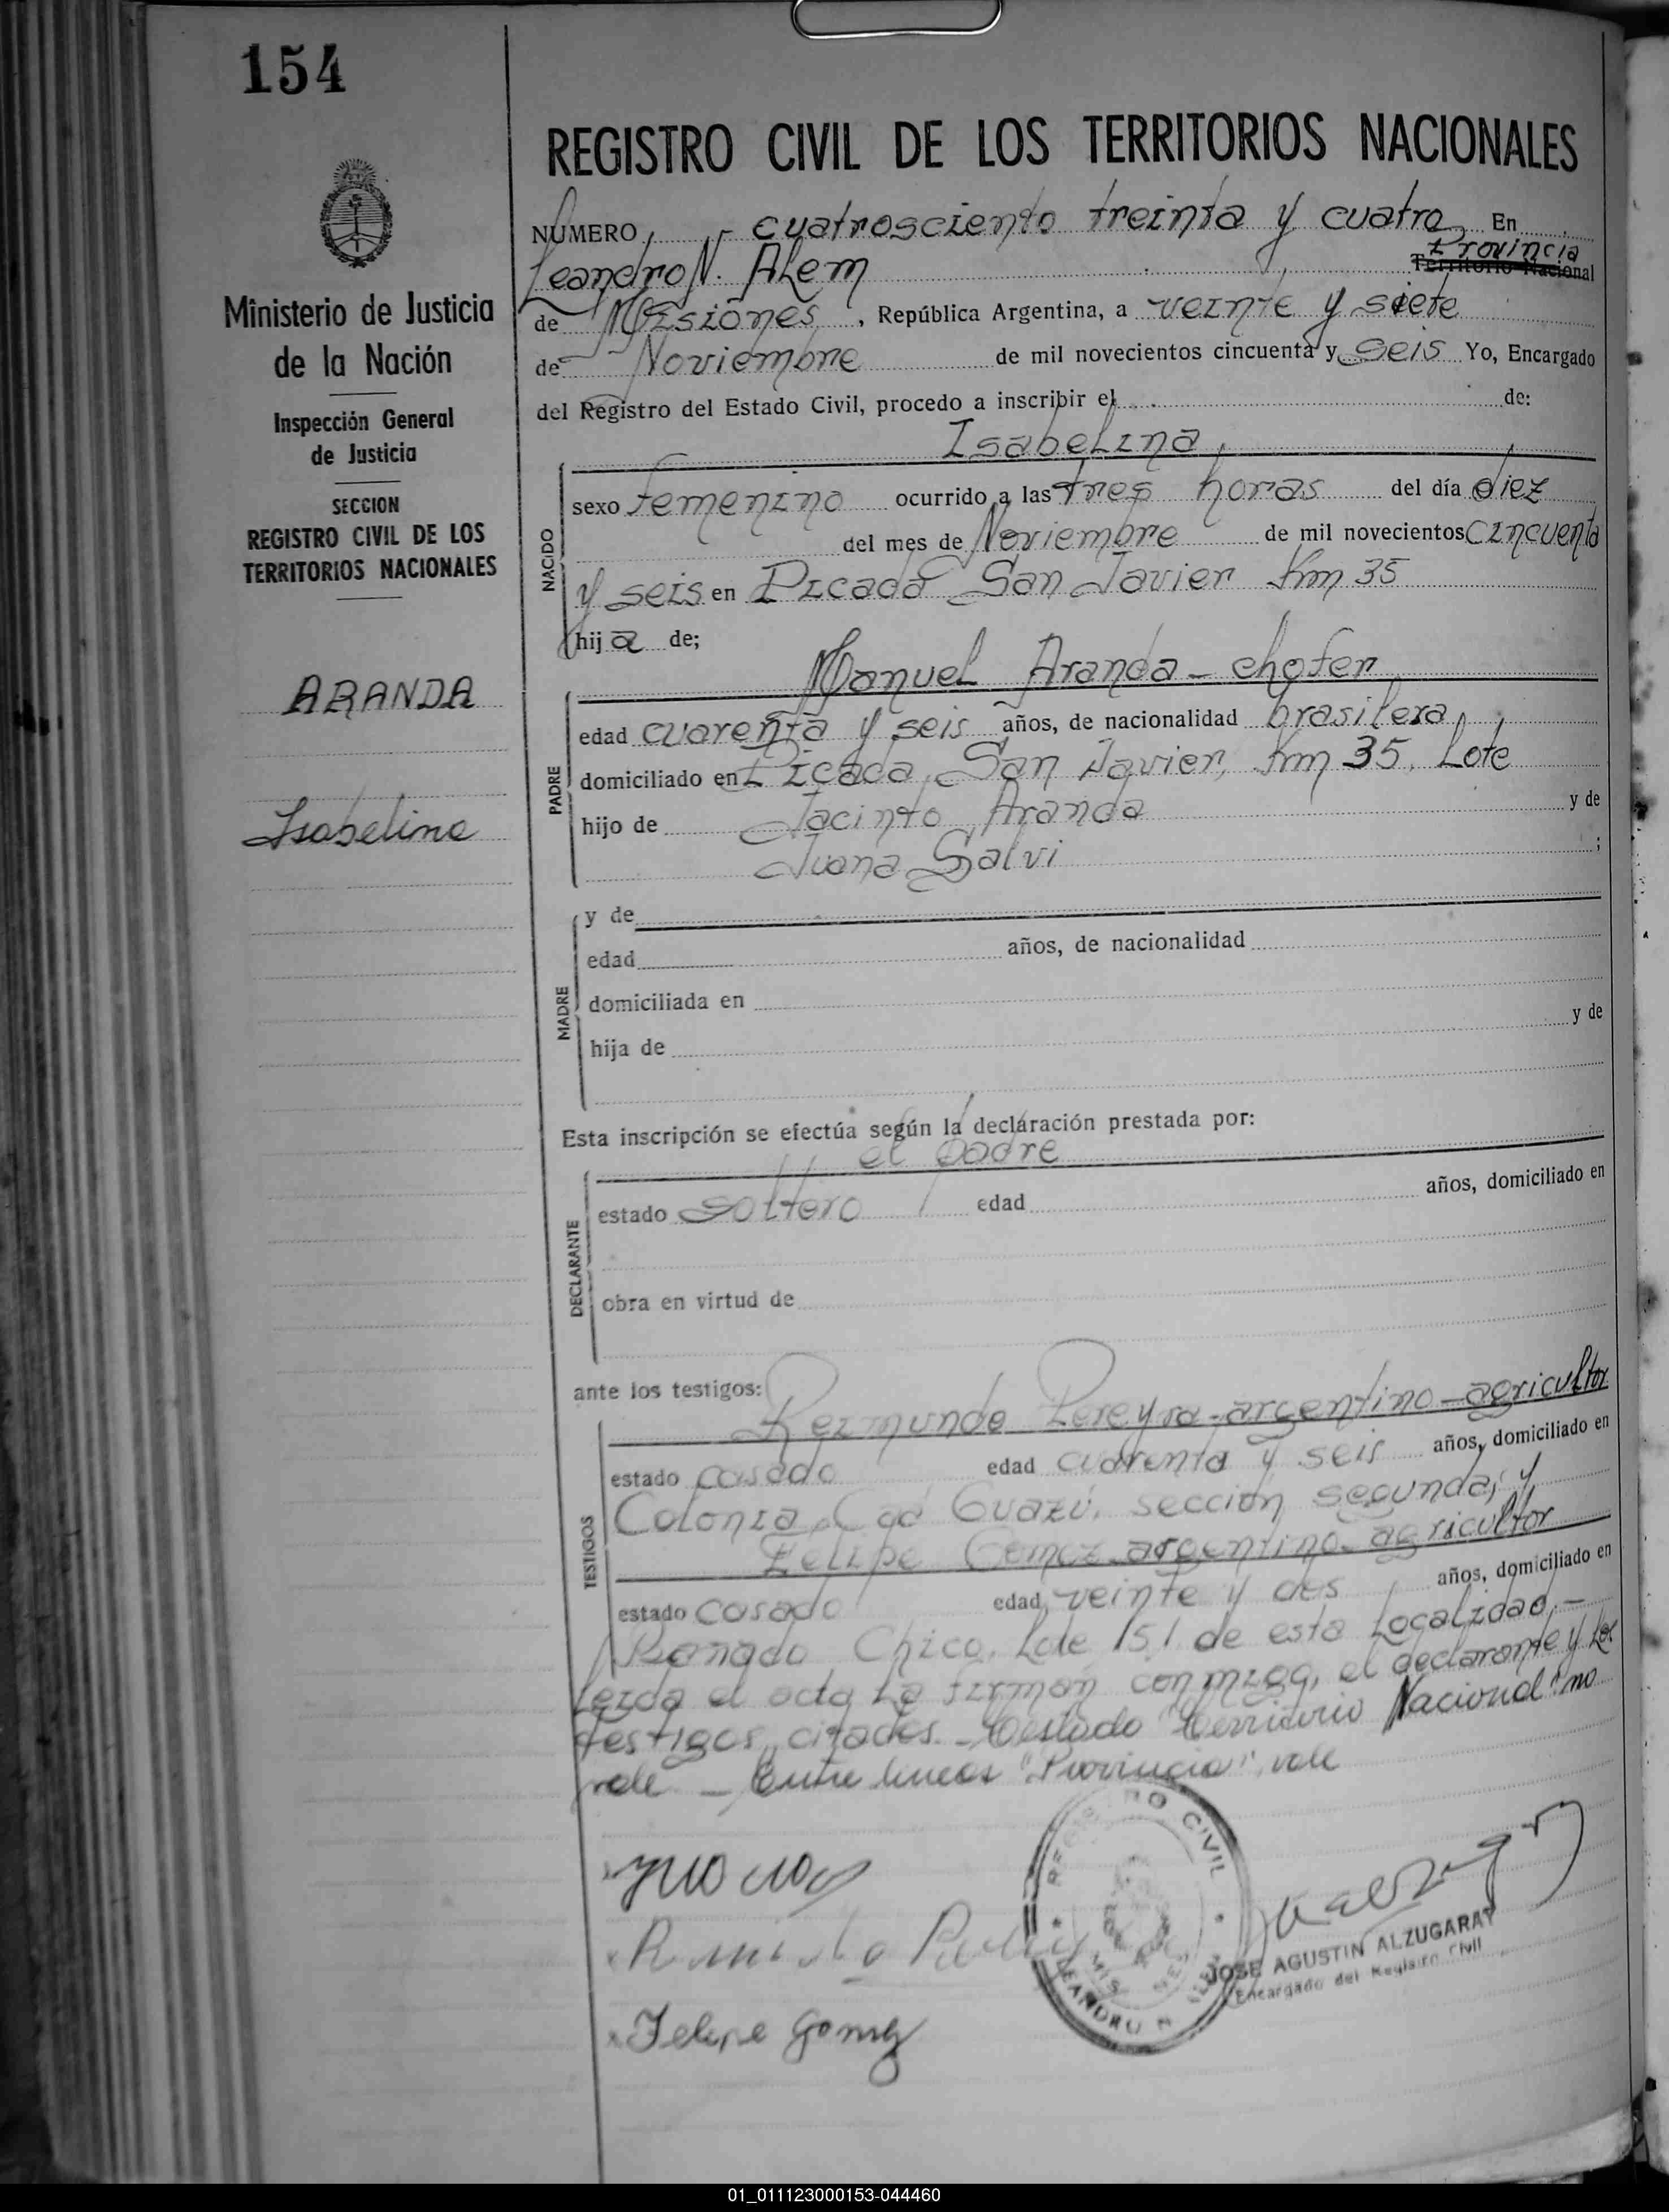 154
REGISTRO CIVIL DE LOS TERRITORIOS NACIONALES
NUMERO cuatrosciento treinta y cuatro En
Provincia
Leandro N. Alem Territorio Nacional
de Misiones, República Argentina, a veinte y siete
de Noviembre de mil novecientos cincuenta y seis Yo, Encargado
del Registro del Estado Civil, procedo a inscribir el de:
Isabelina
Ministerio de Justicia
de la Nación
Inspección General
de Justicia
SECCION
REGISTRO CIVIL DE LOS
TERRITORIOS NACIONALES
ARANDA
Isabelina
NACIDO
sexo femenino ocurrido a las tres horas del día diez
del mes de Noviembre de mil novecientos cincuenta
y seis en Picada San Javier Km 35
hija de;
Manuel Aranda - chofer
PADRE
edad cuarenta y seis años, de nacionalidad brasilera
domiciliado en Picada San Javier, Km 35. Lote
hijo de Jacinto Aranda y de
Juana Salvi ;
MADRE
y de
edad años, de nacionalidad
domiciliada en
hija de y de
Esta inscripción se efectúa según la declaración prestada por:
el padre
DECLARANTE
estado soltero edad años, domiciliado en
obra en virtud de
ante los testigos:
Reimundo Pereyra - argentino - agricultor
TESTIGOS
estado casado edad cuarenta y seis años, domiciliado en
Colonia Caá Guazú, sección segunda; y
Felipe Gomez - argentino - agricultor
estado casado edad veinte y dos años, domiciliado en
Bañado Chico, Lote 151 de esta Localidad.-
Leida el acta la firman conmigo, el declarante y los
testigos citados. - Testado "Territorio Nacional" no
vale - Entre lineas "Provincia", vale
Felipe Gomez
REGISTRO CIVIL
LEANDRO N. ALEM
MISIONES
JOSE AGUSTIN ALZUGARAY
Encargado del Registro Civil
01_011123000153-044460